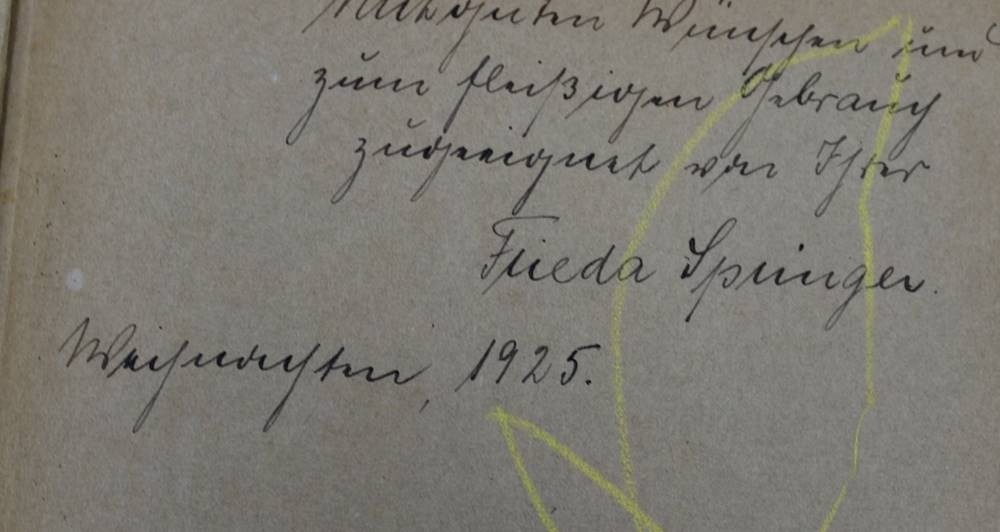 Mit guten Wünschen und
zum fleißigen Gebrauch
zugeeignet von Ihrer
Frieda Springer.
Weihnachten, 1925.